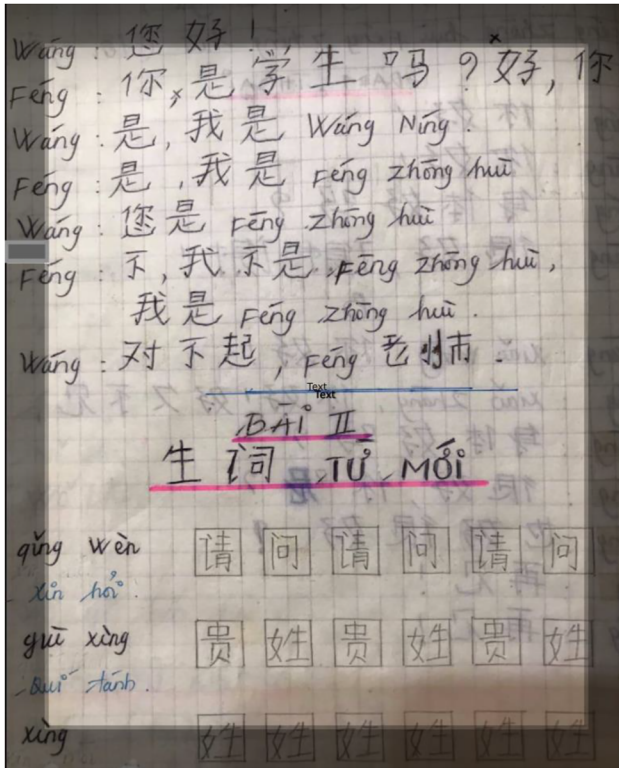 Wáng : 您好!
Féng : 你, 是学生吗?好, 你
Wáng : 是, 我是 Wáng Níng.
Féng : 是, 我是 Féng zhōng huì
Wáng : 您是 Fēng zhōng huì
Féng : 不, 我不是 Fēng zhōng huì,
我是 Féng zhōng huì.
Wáng : 对不起, Féng 老师.
Text
Text
BÀI II
生词 TỪ MỚI
qǐng wèn 请 问 请 问 请 问
xin hỏi.
guì xìng 贵 姓 贵 姓 贵 姓
Quí tánh.
xìng 姓 姓 姓 姓 姓 姓